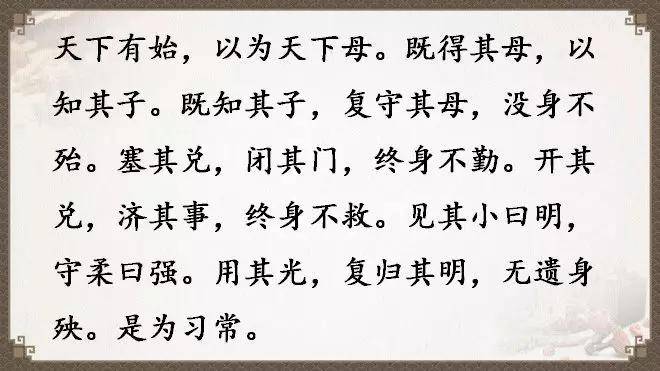 天下有始，以为天下母。既得其母，以
知其子。既知其子，复守其母，没身不
殆。塞其兑，闭其门，终身不勤。开其
兑，济其事，终身不救。见其小曰明，
守柔曰强。用其光，复归其明，无遗身
殃。是为习常。